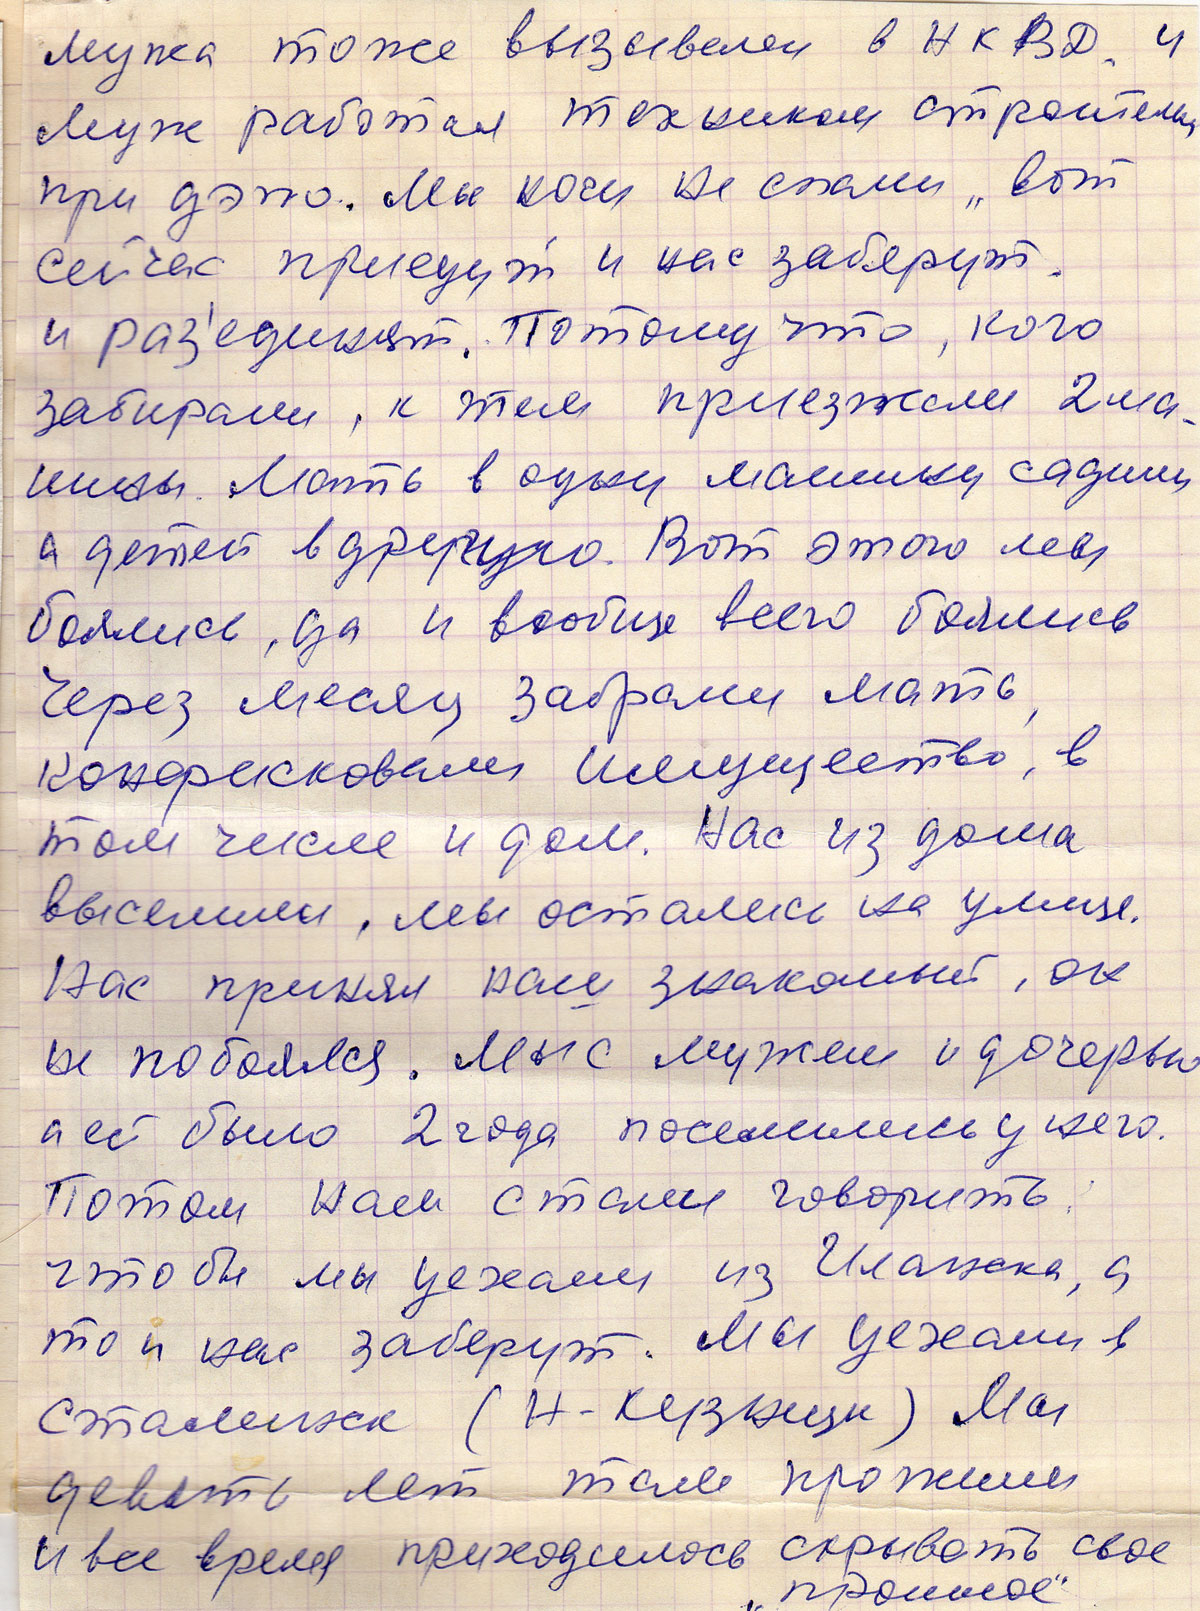 мужа тоже вызывали в НКВД. и
муж работал техником строителем
при дэпо. Мы ночи не спали „вот
сейчас приедут и нас заберут.
и раз'единят. Потому что, кого
забирали, к тем приезжали 2 ма-
шины. Мать в одну машину садили
а детей в другую. Вот этого мы
боялись, да и вообще всего боялись
Через месяц забрали мать,
конфисковали имущество, в
том числе и дом. Нас из дома
выселили, мы остались на улице.
Нас принял наш знакомый, он
не побоялся. Мы с мужем и дочерью
а ей было 2 года поселились у него.
Потом нам стали говорить
чтобы мы уехали из Иланска, а
то и нас заберут. Мы уехали в
Сталинск (Н-Кузнецк) Мы
девять лет там прожили
и все время приходилось скрывать свое
„прошлое"